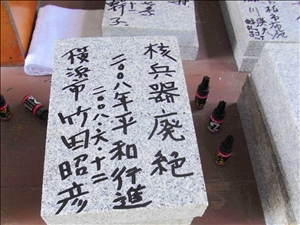 核兵器廃絶
二〇〇八年平和行進
二〇〇八・六・十二
横浜市 竹田昭彦